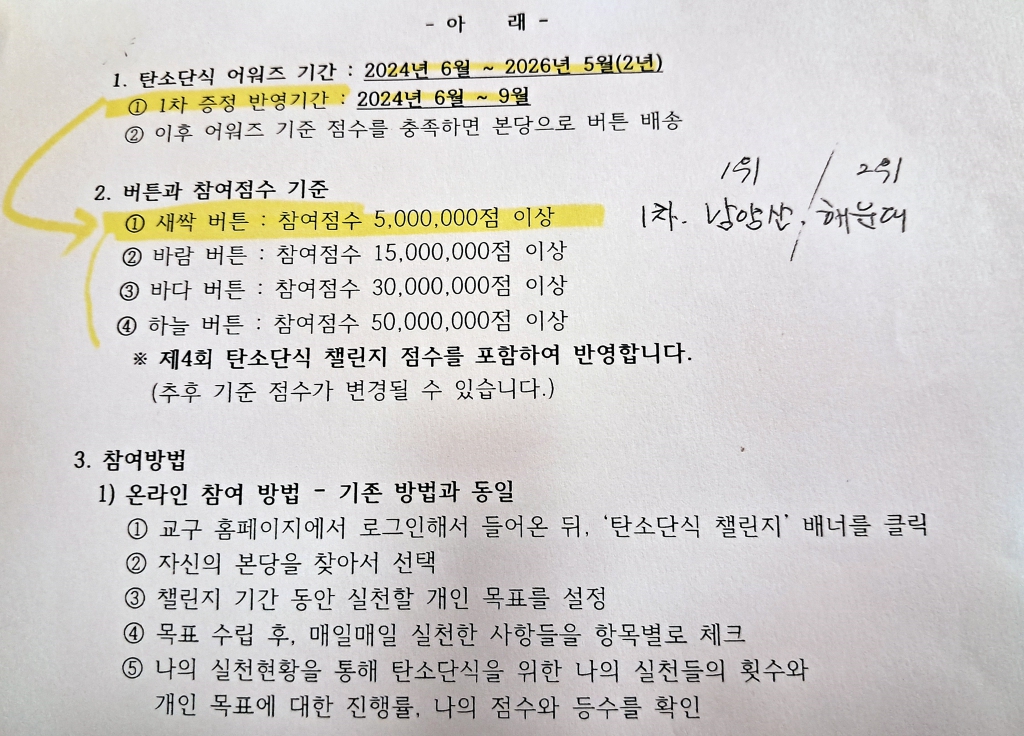 - 아 래 -
1. 탄소단식 어워즈 기간 : 2024년 6월 ~ 2026년 5월(2년)
① 1차 증정 반영기간 : 2024년 6월 ~ 9월
② 이후 어워즈 기준 점수를 충족하면 본당으로 버튼 배송
1위 / 2위
1차. 남양산, 해운대
2. 버튼과 참여점수 기준
① 새싹 버튼 : 참여점수 5,000,000점 이상
② 바람 버튼 : 참여점수 15,000,000점 이상
③ 바다 버튼 : 참여점수 30,000,000점 이상
④ 하늘 버튼 : 참여점수 50,000,000점 이상
※ 제4회 탄소단식 챌린지 점수를 포함하여 반영합니다.
(추후 기준 점수가 변경될 수 있습니다.)
3. 참여방법
1) 온라인 참여 방법 - 기존 방법과 동일
① 교구 홈페이지에서 로그인해서 들어온 뒤, ‘탄소단식 챌린지’ 배너를 클릭
② 자신의 본당을 찾아서 선택
③ 챌린지 기간 동안 실천할 개인 목표를 설정
④ 목표 수립 후, 매일매일 실천한 사항들을 항목별로 체크
⑤ 나의 실천현황을 통해 탄소단식을 위한 나의 실천들의 횟수와
개인 목표에 대한 진행률, 나의 점수와 등수를 확인